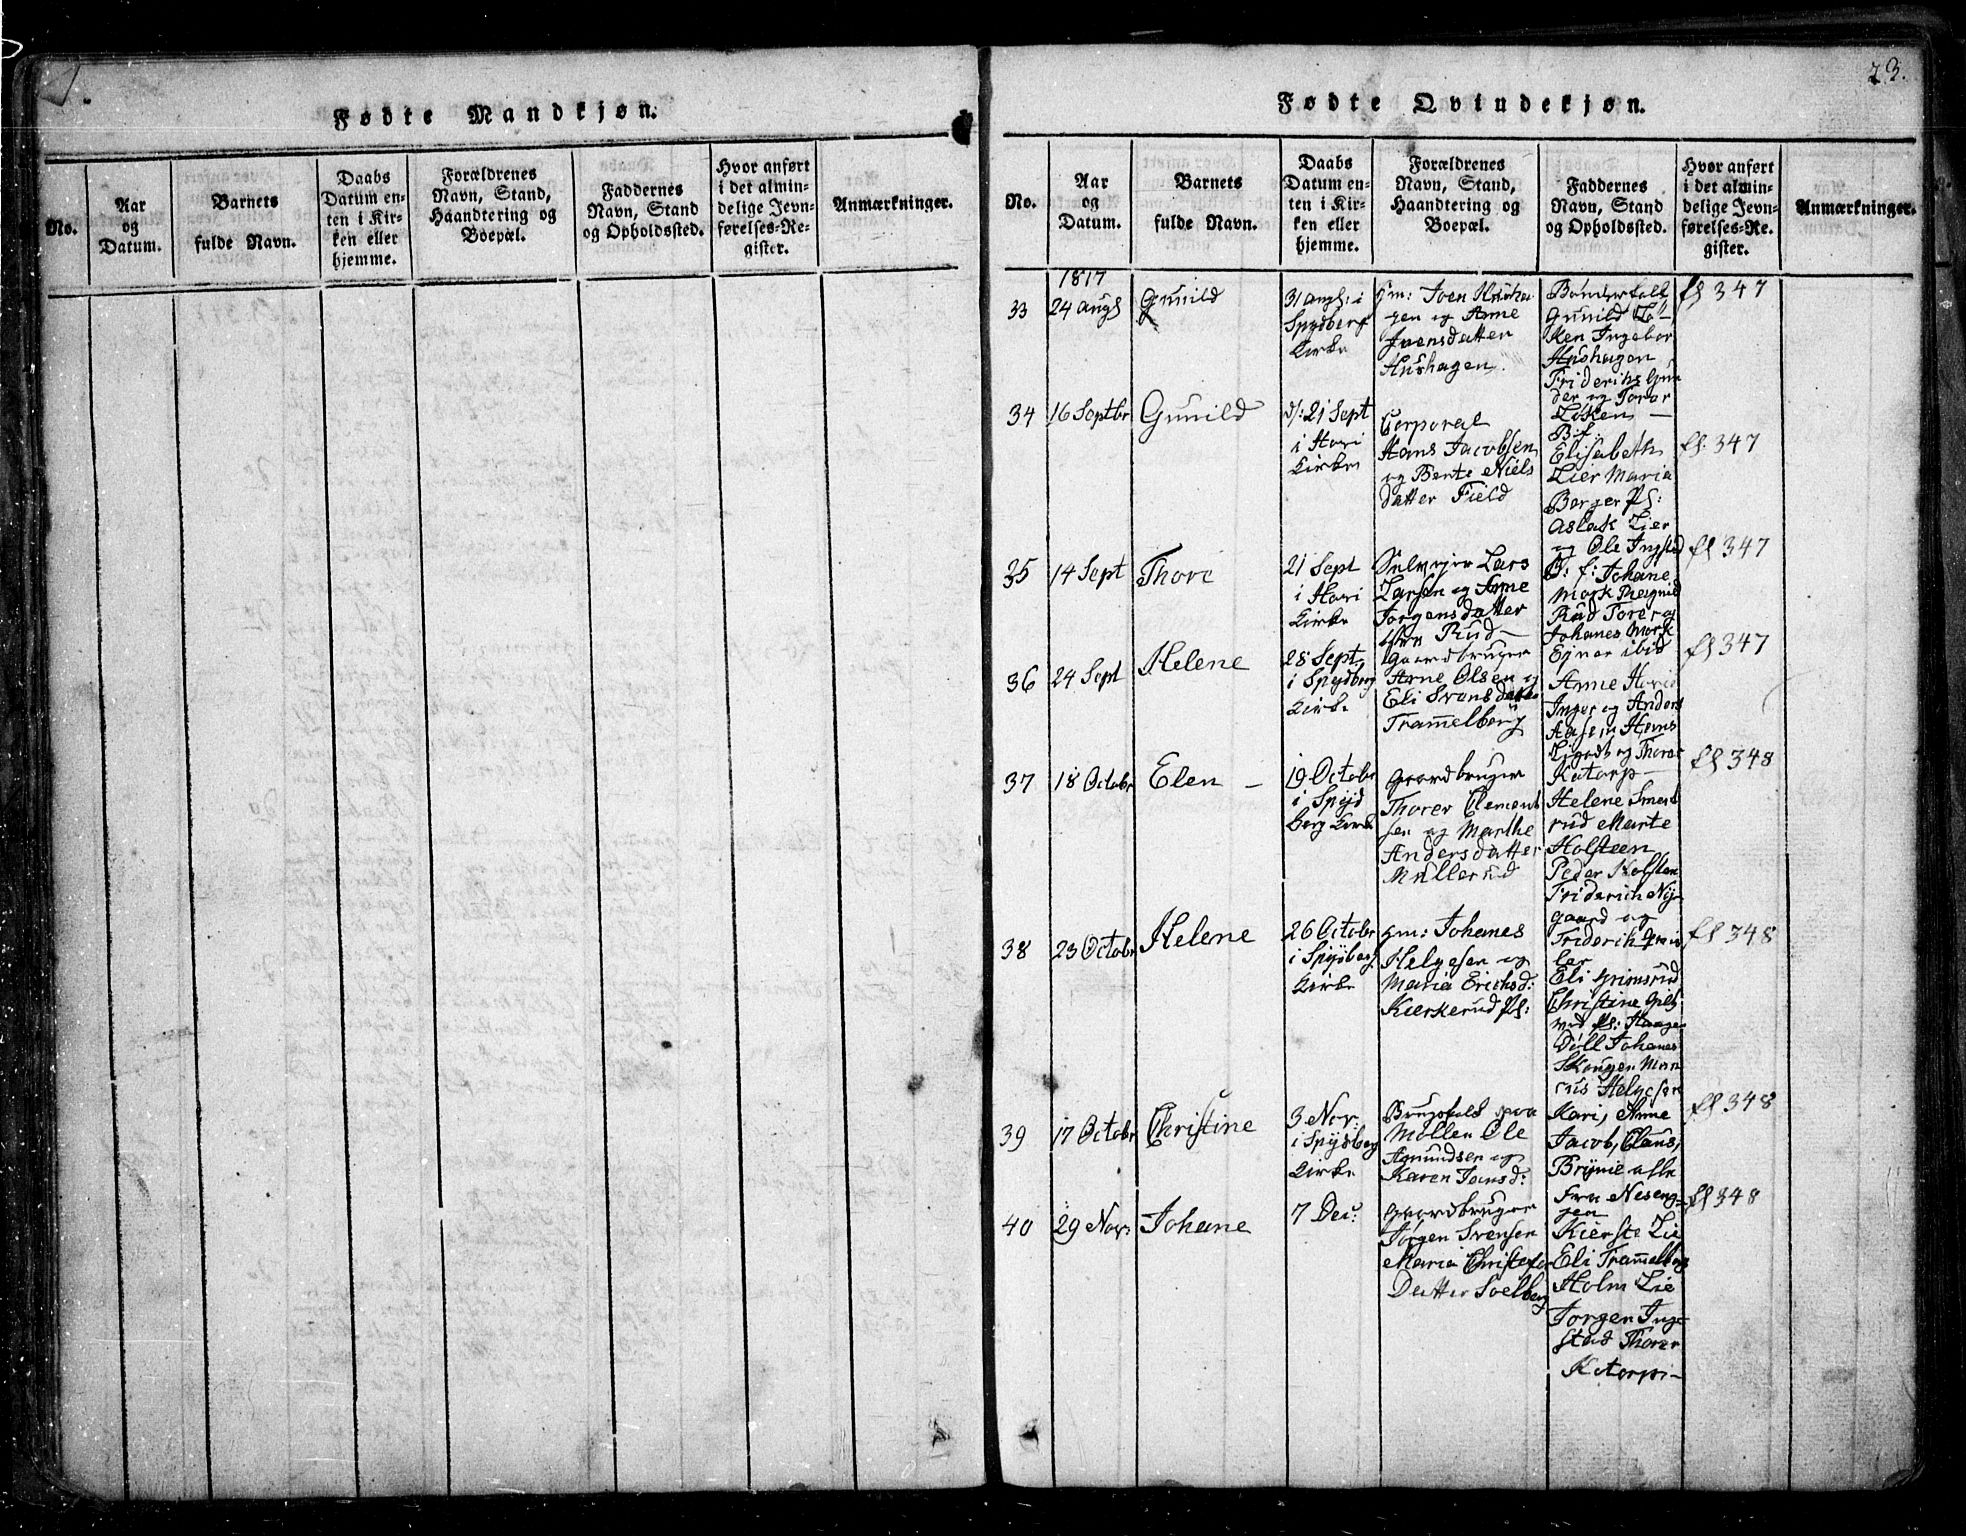 23.
Fødte Mandkjøn.
No.
Aar
og
Datum.
Barnets
fulde Navn.
Daabs
Datum en-
ten i Kir-
ken eller
hjemme.
Forældrenes
Navn, Stand,
Haandtering og
Boepæl.
Faddernes
Navn, Stand
og Opholdssted.
Hvor anført
i det almin-
delige Jevn-
førelses-Re-
gister.
Anmærkninger.
Fødte Qvindekjøn.
No.
Aar
og
Datum.
Barnets
fulde Navn.
Daabs
Datum en-
ten i Kir-
ken eller
hjemme.
Forældrenes
Navn, Stand,
Haandtering og
Boepæl.
Faddernes
Navn, Stand
og Opholdssted.
Hvor anført
i det almin-
delige Jevn-
førelses-Re-
gister.
Anmærkninger.
1817
33
24 Augs
Gunild
31 Augs: i
Spydberg
Kirke
gm: Joen Husha
gen og Anne
Joensdatter
Hushagen
Bonderfolk
Gunild Lö-
ken Ingebor
Hushagen
Friderichs Gun
der og Toror
Löken —
fl 347
34
16 Septbr
Gunild
d: 21 Sept
i Hovi
Kirke
Corporal
Hans Jacobsen
og Bente Niels
datter Field
B.f.
Elisabeth
Lier Maria
Berger Pl:
Aslak Lier
og Ole Ingstad
fl: 347
35
14 Sept
Thore
21 Sept
i Hovi
Kirke
Selvejer Lars
Larsen og Anne
Jorgensdatter
Rud —
B: f: Johane
Mork
Rud Torer og
Johanes Mork
Ejner ibid
fl 347
36
24 Sept
Helene
28 Sept
i Spydberg
Kirke
Gaardbruger
Arne Olsen og
Eli Svensdatter
Tram̄elborg
Anne Hovi
Inger og Anders
Aasen Hans
og Thorer
Katorp —
fl 347
37
18 Octobr
Elen —
19 Octobr
i Spyd
berg Kirke
Gaardbruger
Thorer Clement
sen og Marthe
Andersdatter
Müllerud
Helene Smed
rud Marte
Holsteen
Peder Holsten
Friderich Ny
gaard og
Friderich
ler
fl 348
38
23 Octobr
Helene
26 Octobr
i Spydberg
Kirke
gm: Johanes
Helgesen og
Maria Erichsd:
Kierkerud Pl:
Eli Grimsrud
Christine
Döll Johanes
Skougen Mon
rus Helgesen
fl 348
39
17 Octobr
Christine
3 Nov:
i Spydberg
Kirke
Brugsfolk paa
Möllen Ole
Amundsen og
Karen Jansd:
Kari, Anne
Jacob, Claus,
Brynie alle
fra Neseng-
gen
fl 348
40
29 Nov:
Johane
7 Dec:
Gaardbruger
Jörgen Svensen
Maria Christofer
Datter Soelberg
Kierste Lie
Eli Tram̄elborg
Holm Lie
Jorgen Ing-
stad Thorer
Katorp —
fl 348